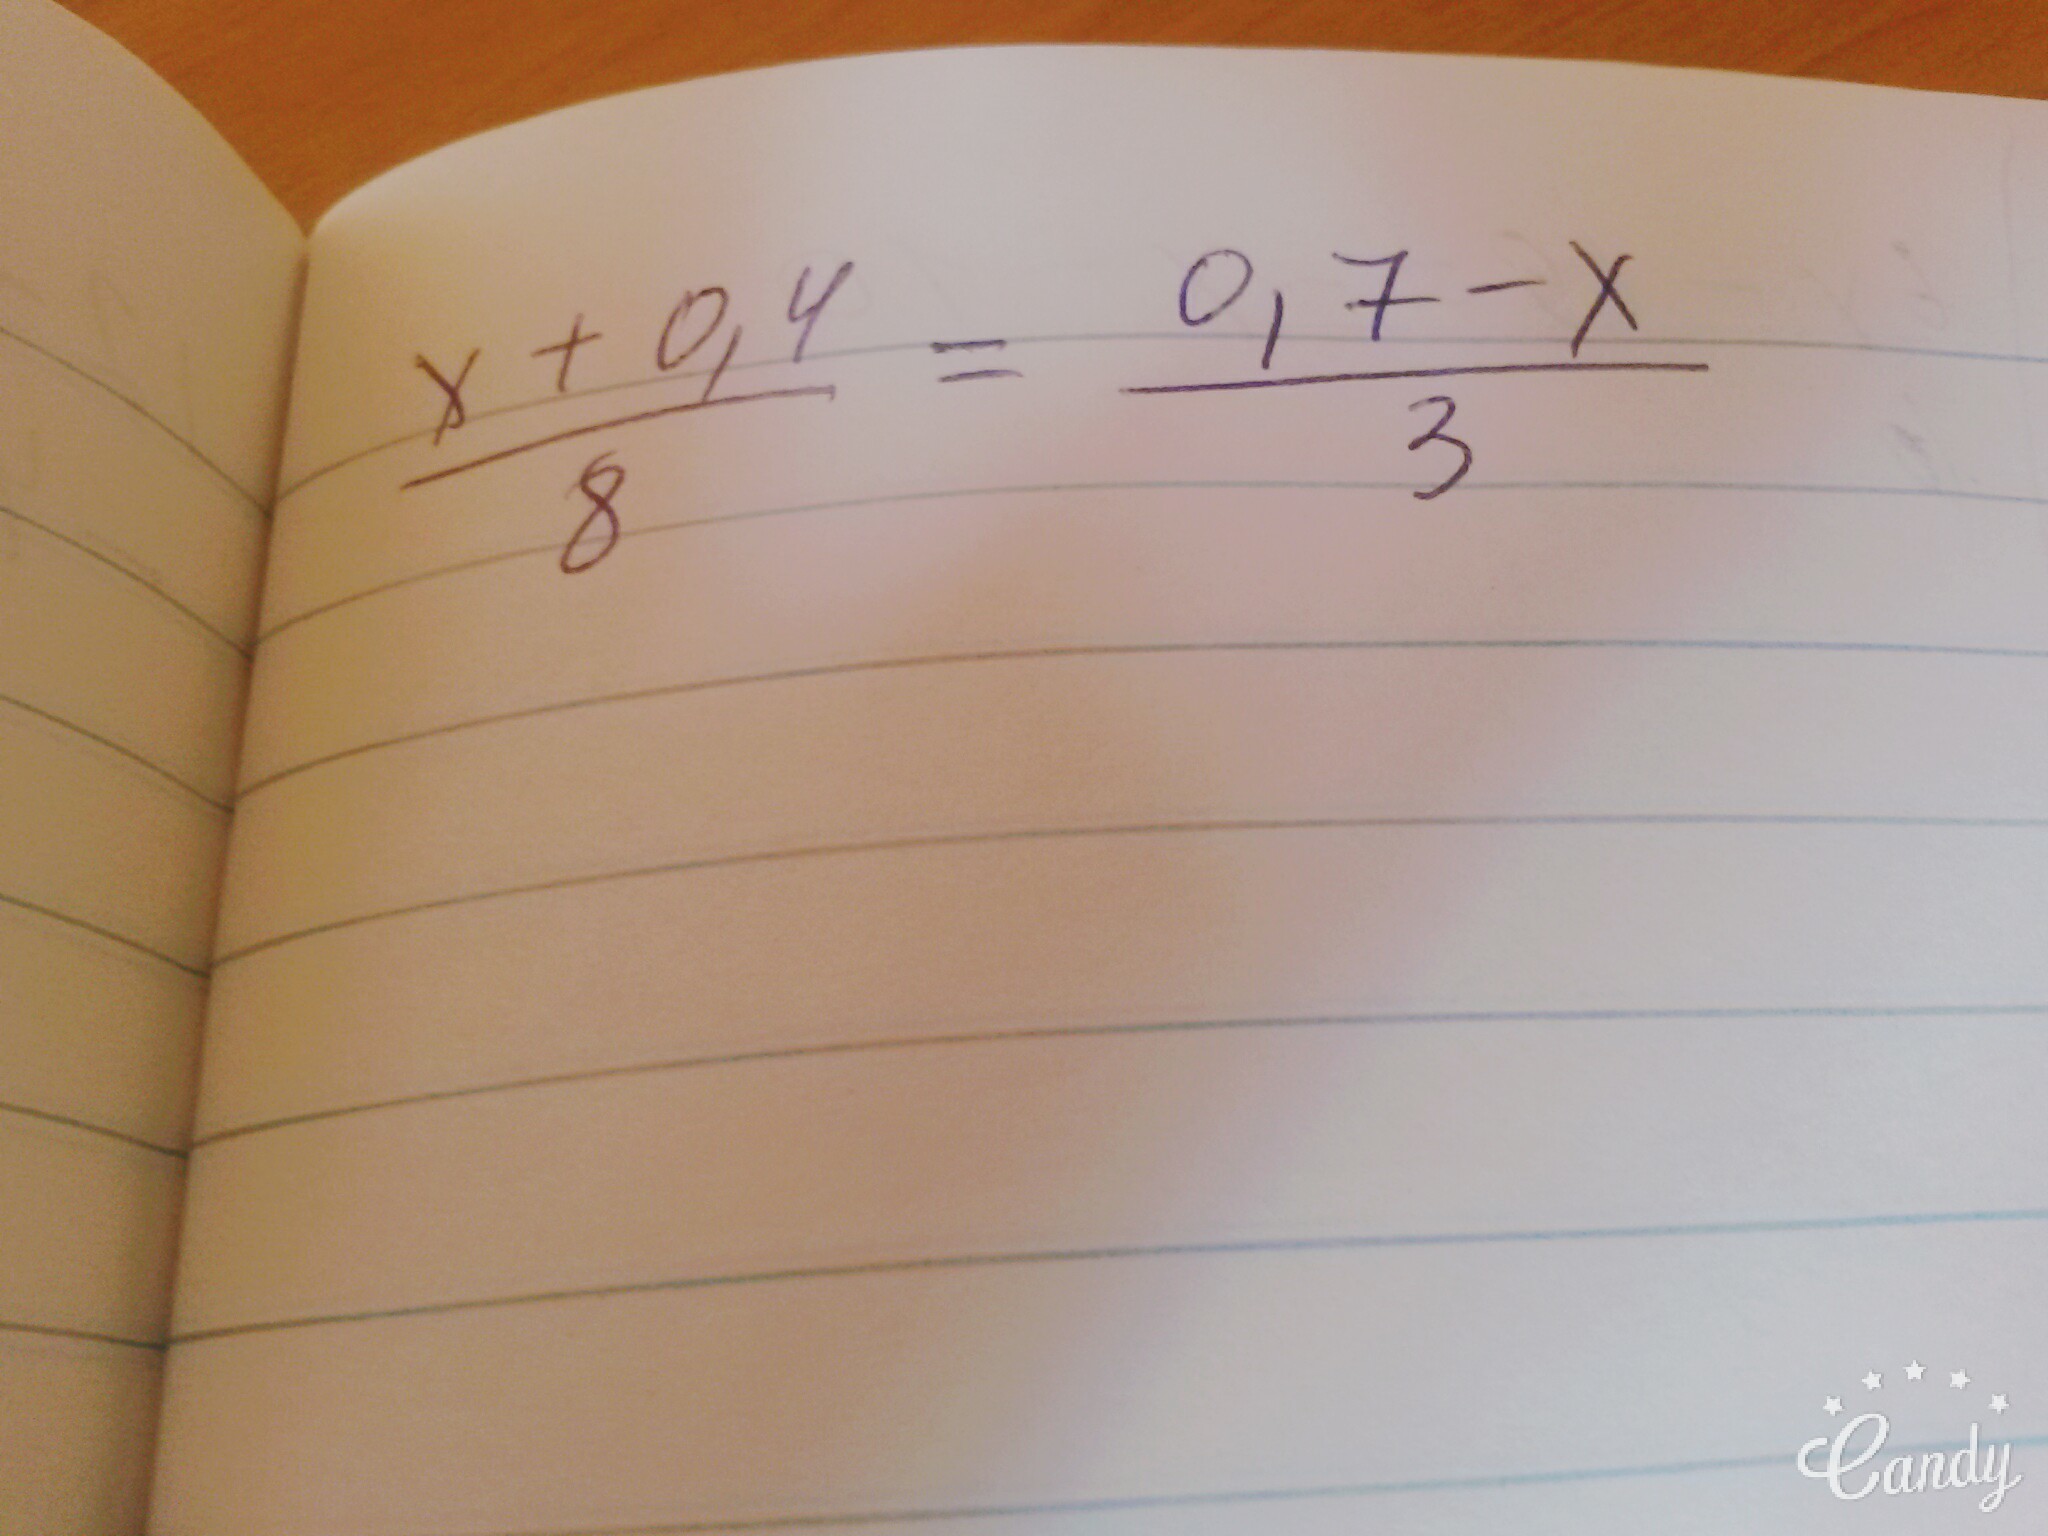 x + 0,4 / 8 = 0,7 - x / 3
Candy